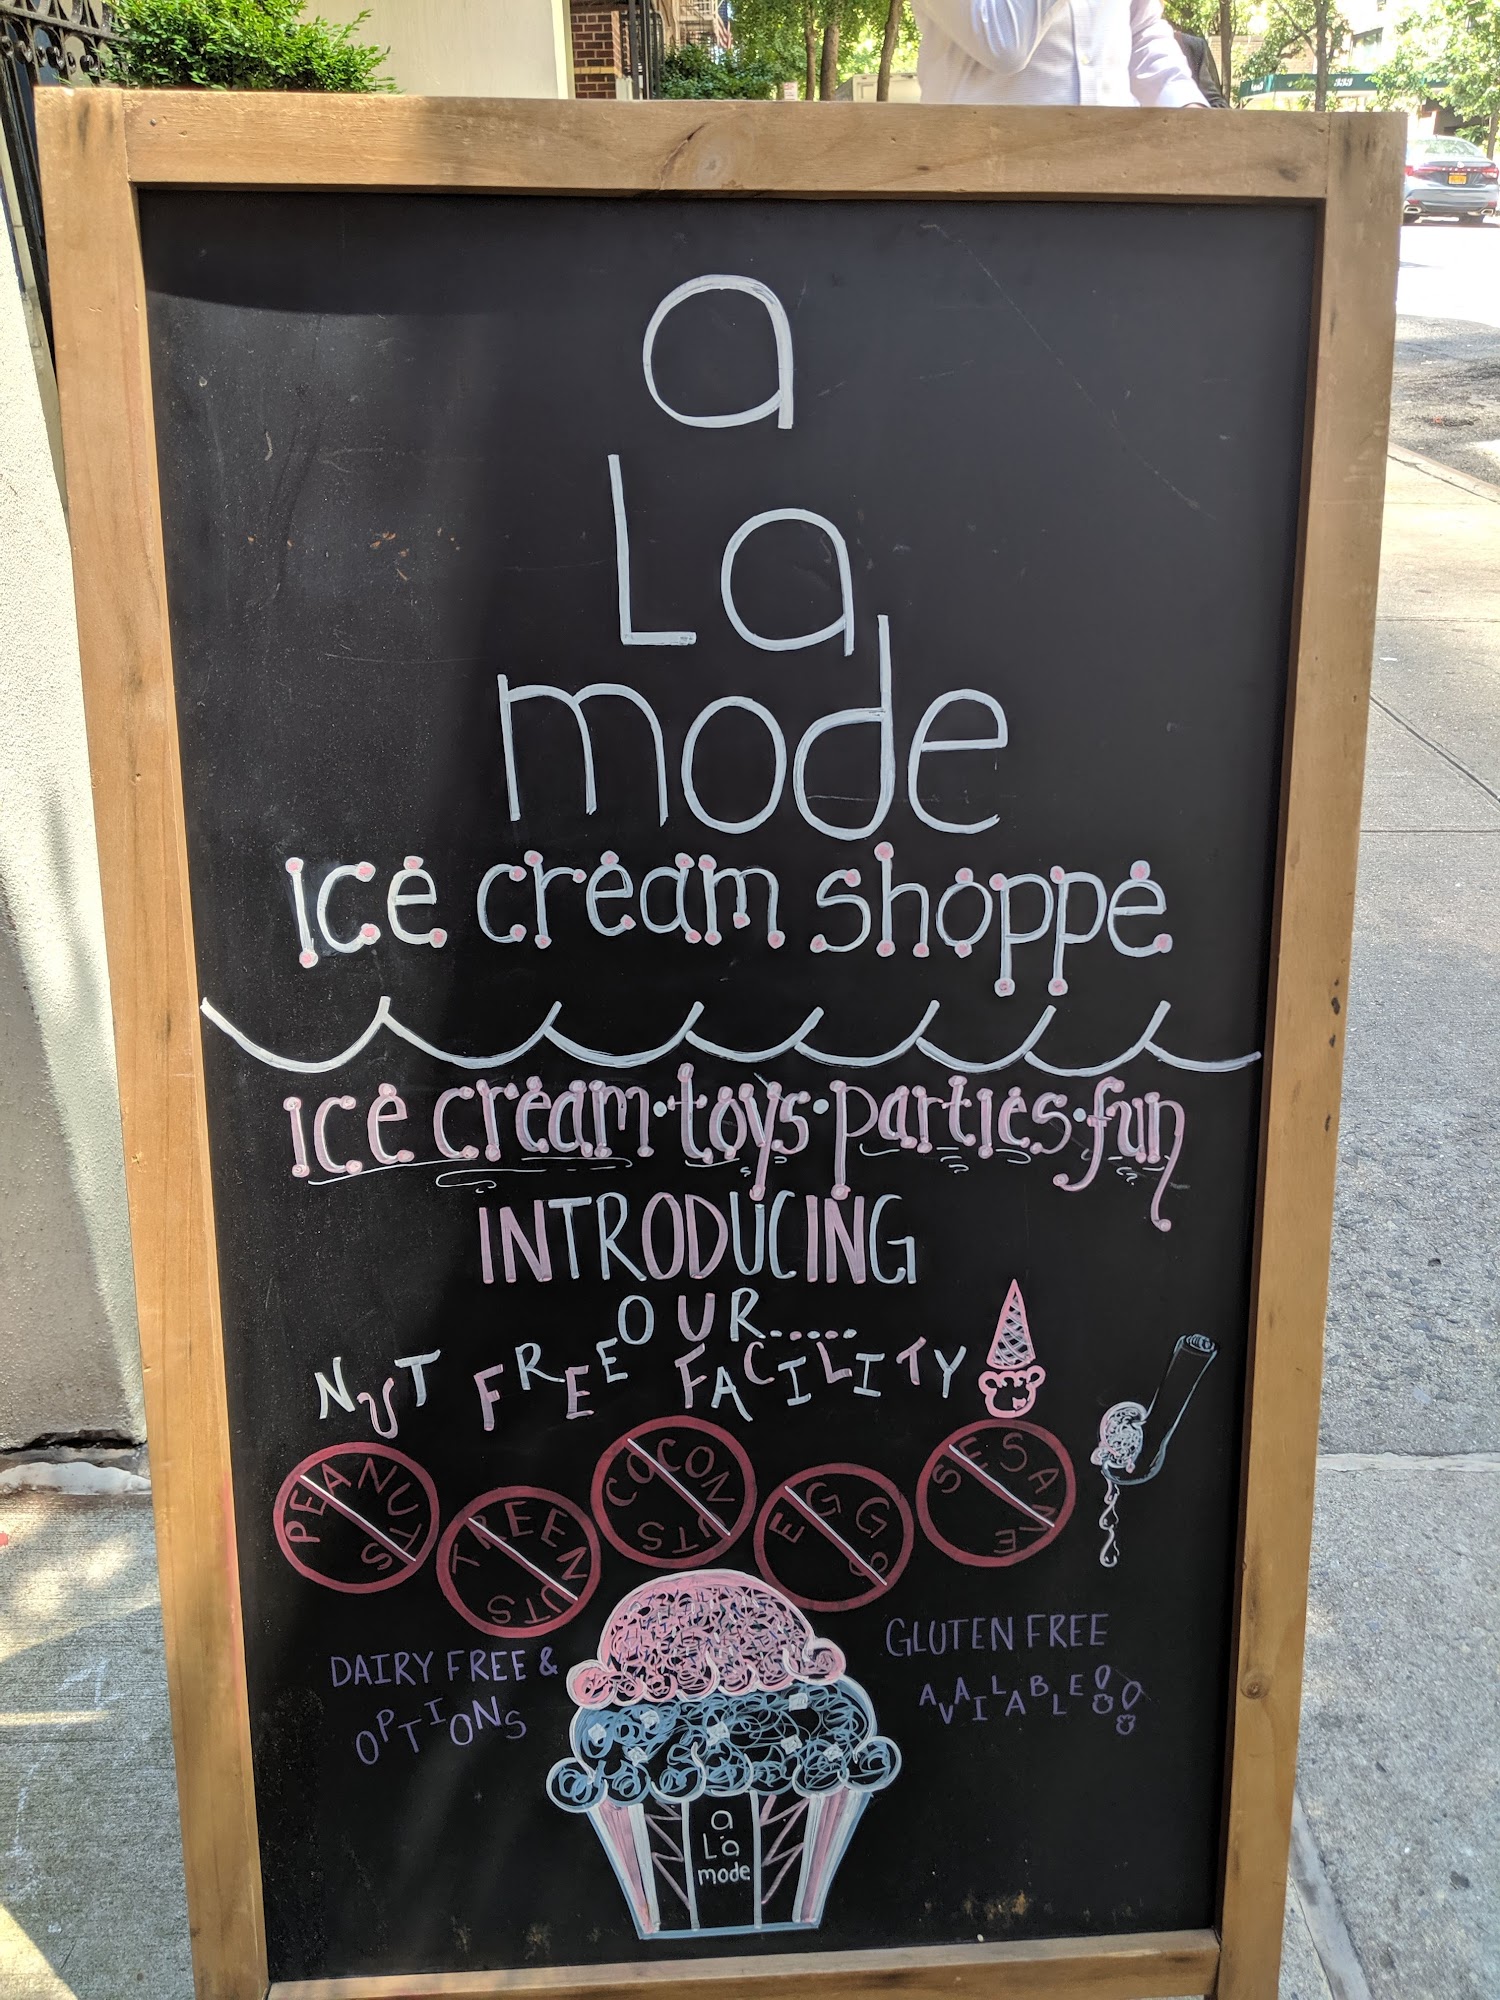 333
a
La
mode
ice cream shoppe
ice cream·toys·parties·fun
INTRODUCING
OUR.....
NUT FREE FACILITY
PEANUTS
TREENUTS
COCONUTS
EGGS
SESAME
DAIRY FREE &
OPTIONS
GLUTEN FREE
AVAILABLE!!
a
La
mode